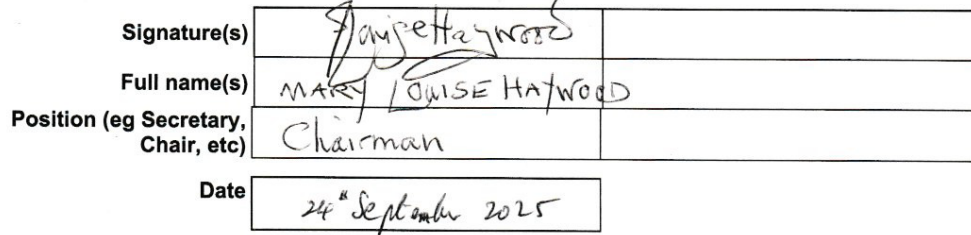 Signature(s) Louise Haywood
Full name(s) MARY LOUISE HAYWOOD
Position (eg Secretary,
Chair, etc) Chairman
Date 24th September 2025